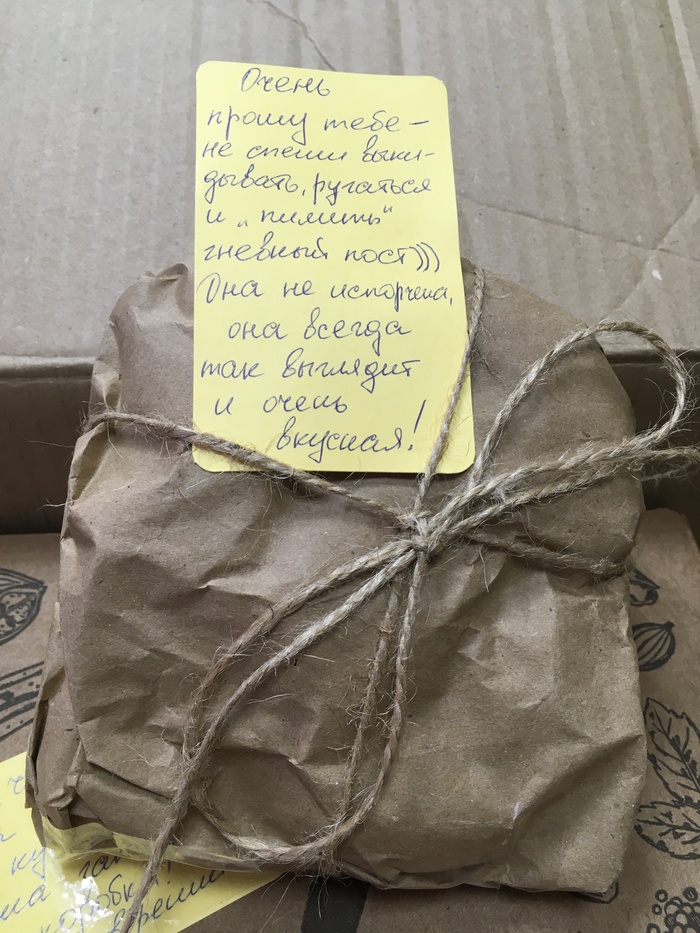 Очень
прошу тебе –
не спеши выки-
дывать, ругаться
и „пилить“
гневный пост)))
Она не испорчена,
она всегда
так выглядит
и очень
вкусная!